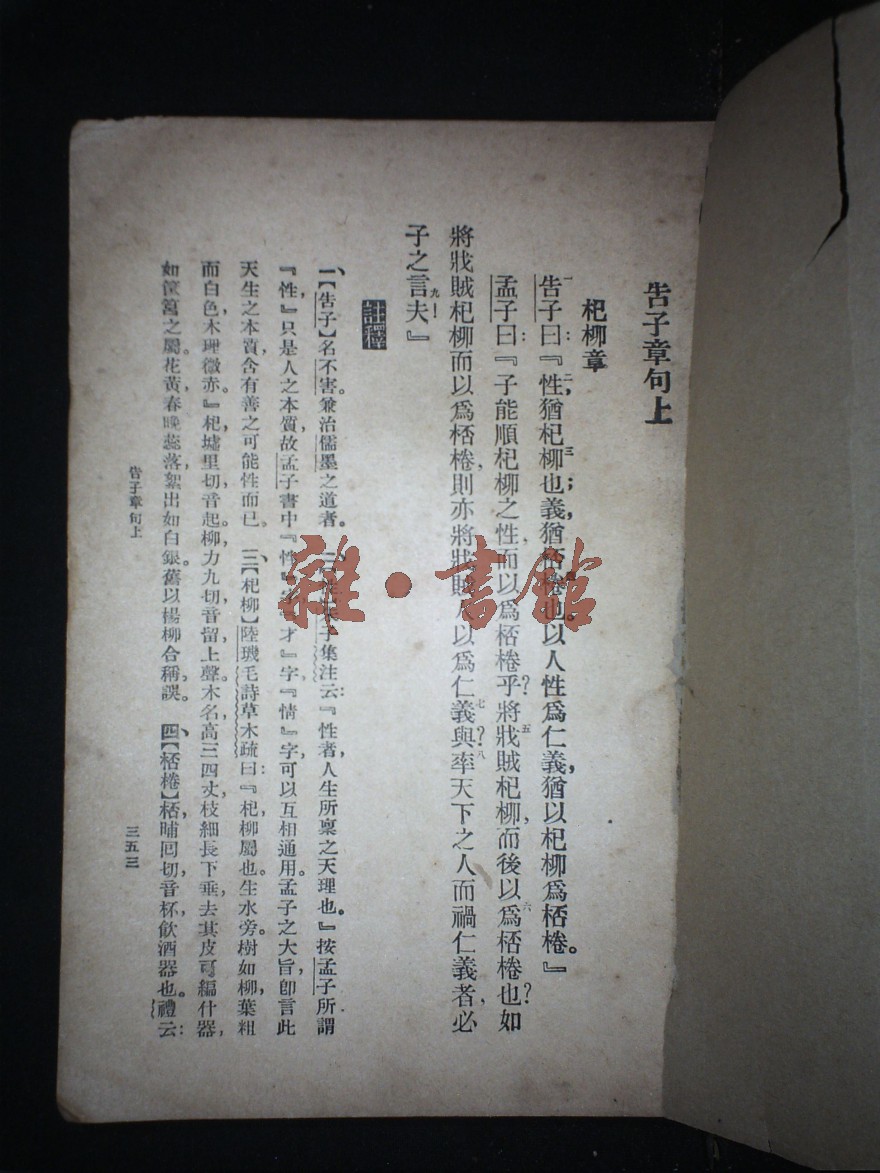 告子章句上
杞柳章
告子曰：『性，猶杞柳也；義，猶桮棬也。以人性爲仁義，猶以杞柳爲桮棬。』
孟子曰：『子能順杞柳之性，而以爲桮棬乎？將戕賊杞柳，而後以爲桮棬也？如
將戕賊杞柳而以爲桮棬，則亦將戕賊人以爲仁義與？率天下之人而禍仁義者，必
子之言夫！』
註釋
一、【告子】名不害。兼治儒墨之道者。二、子集注云：『性者，人生所稟之天理也。』按孟子所謂
『性，』只是人之本質，故孟子書中『性』字『才』字『情』字可以互相通用。孟子之大旨，卽言此
天生之本質，含有善之可能性而已。三、【杞柳】陸璣毛詩草木疏曰：『杞，柳屬也。生水旁。樹如柳，葉粗
而白色，木理微赤。』杞，墟里切，音起。柳，力九切，音留上聲。木名，高三四丈，枝細長下垂，去其皮可編什器，
如筐筥之屬。花黃，春晚蕊落，絮出如白銀。舊以楊柳合稱，誤。四、【桮棬】桮，晡囘切，音杯，飮酒器也。禮云：
告子章句上
三五三
雜·書館